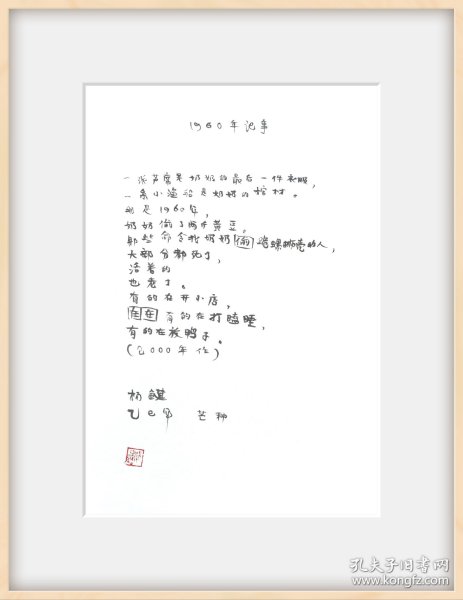 1960年记事
一张芦席是奶奶的最后一件衣服,
一条小渔船是奶奶的棺材。
那是1960年,
奶奶偷了两斤黄豆,
那些命令我奶奶偷 蹲螺蛳壳的人,
大部分都死了,
活着的
也老了。
有的在开小店,
在在 有的在打瞌睡,
有的在放鸭子。
(2000年作)
杨键
乙巳年 芒种
孔夫子旧书网
www.kongfz.com